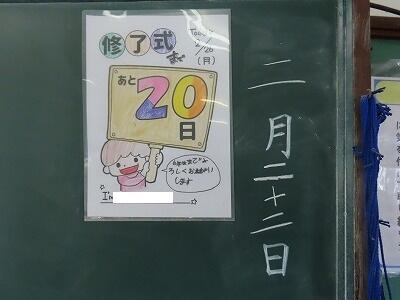 修了式
まで
Today is
2/26
(月)
あと
20
日
6年生までよ
ろしくお願い
します
I'm
二月二十二日